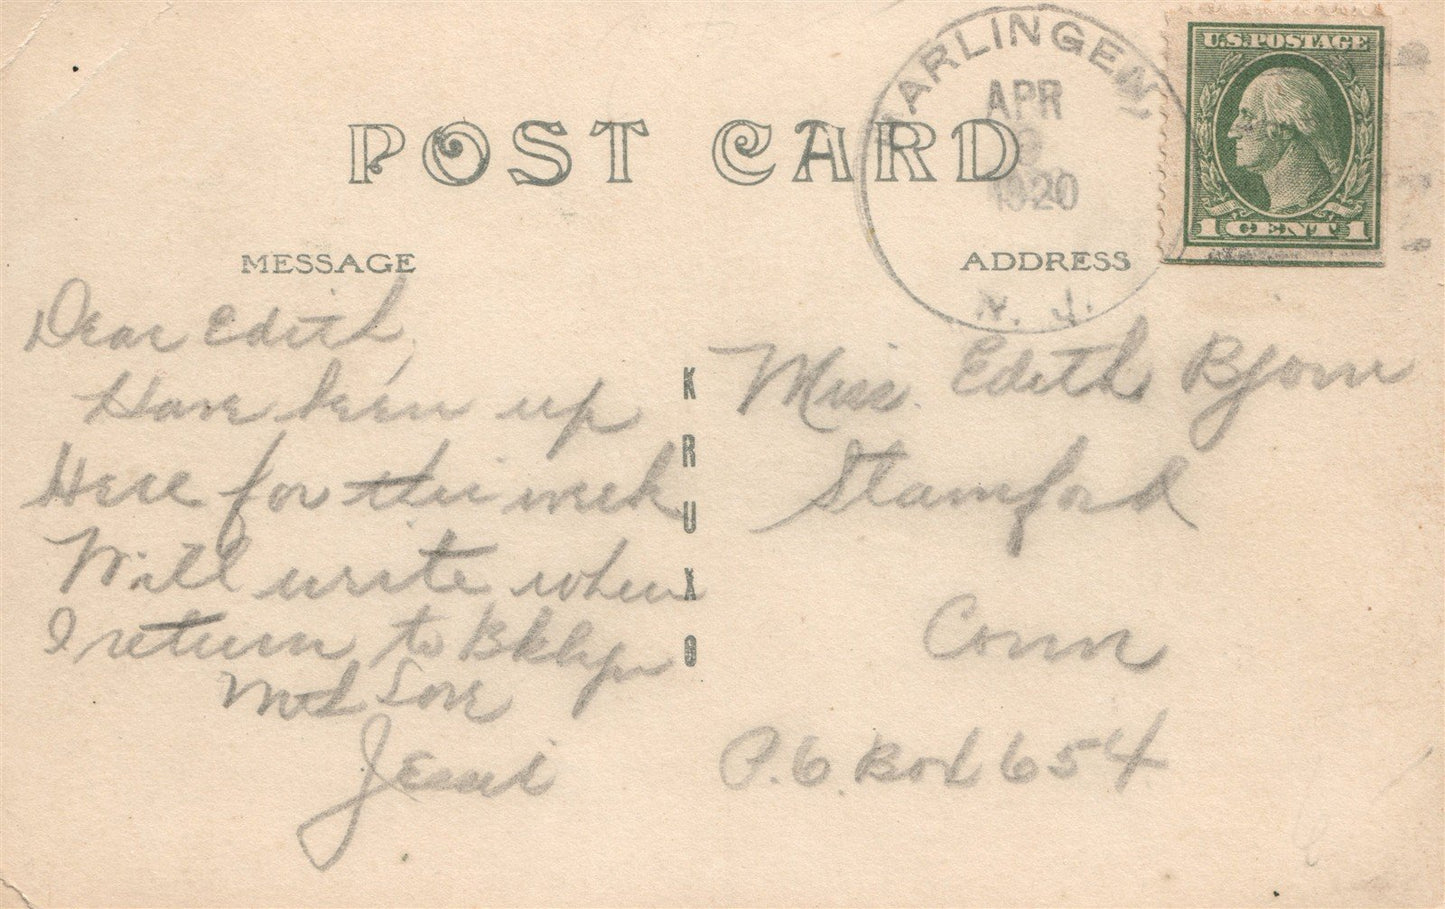 POST CARD
HARLINGEN
APR
9
1920
N. J.
U.S. POSTAGE
1 CENT 1
MESSAGE
ADDRESS
Dear Edith,
Have been up
Here for the week
Will write when
I return to Bklyn
Love
Jessie
KRUXO
Miss. Edith Bjorn
Stamford
Conn
P.O. Box 654